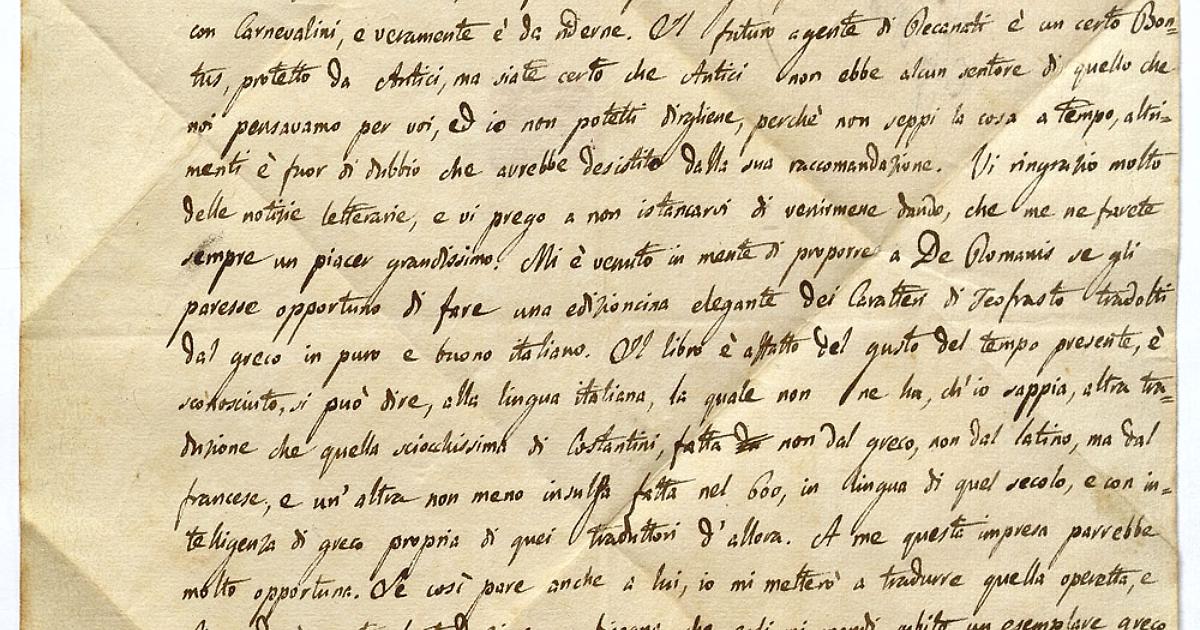 con Carnevalini, e veramente è da riderne. Il futuro agente di Recanati è un certo Bon=
tus, protetto da Antici, ma siate certo che Antici non ebbe alcun sentore di quello che
noi pensavamo per voi, ed io non potetti dirgliene, perchè non seppi la cosa a tempo, altri=
menti è fuor di dubbio che avrebbe desistito dalla sua raccomandazione. Vi ringrazio molto
delle notizie letterarie, e vi prego a non istancarvi di venirmene dando, che me ne farete
sempre un piacer grandissimo. Mi è venuto in mente di proporre a De Romanis se gli
paresse opportuno di fare una edizioncina elegante dei Caratteri di Teofrasto tradotti
dal greco in puro e buono italiano. Il libro è affatto del gusto del tempo presente, è
sconosciuto, si può dire, alla lingua italiana, la quale non ne ha, ch'io sappia, altra tra=
duzione che quella sciocchissima di Costantini, fatta non dal greco, non dal latino, ma dal
francese, e un' altra non meno insulsa fatta nel 600, in lingua di quel secolo, e con in=
telligenza di greco propria di quei traduttori d'allora. A me questa impresa parrebbe
molto opportuna. Se così pare anche a lui, io mi metterò a tradurre quella operetta, e
che mi mandi subito un esemplare greco